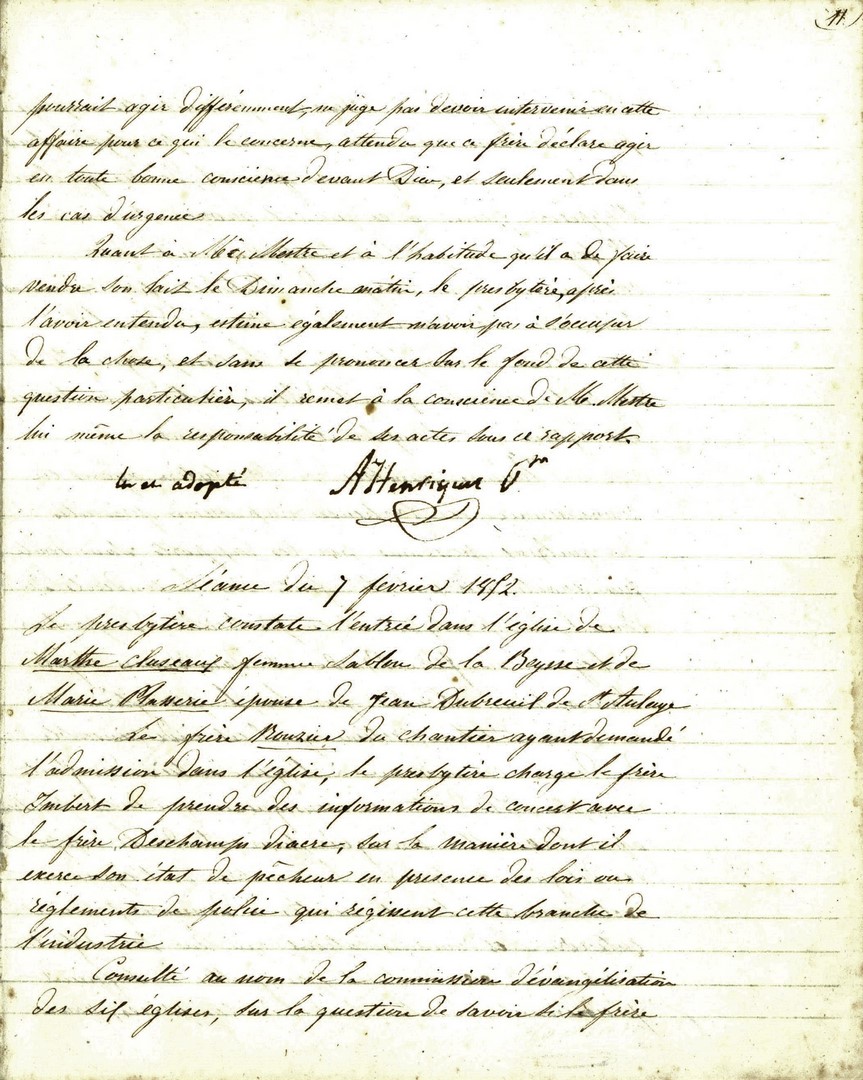 11
pourrait agir différemment, ne juge pas devoir intervenir en cette
affaire pour ce qui le concerne, attendu que ce frère déclare agir
en toute bonne conscience devant Dieu, et seulement dans
les cas d'urgence
Quant à Mestre et à l'habitude qu'il a de faire
vendre son lait le Dimanche matin, le presbytère, après
l'avoir entendu, estime également n'avoir pas à s'occuper
de la chose, et sans se prononcer sur le fond de cette
question particulière, il remet à la conscience de M. Mestre
lui même la responsabilité de ses actes sous ce rapport.
lu et adopté AHenriquet
Séance du 7 février 1852.
Le presbytère constate l'entrée dans l'église de
Marthe Cluseau femme Sablou de la Beysse et de
Marie épouse de Jean Dubreuil de St Aulaye
Le frère Rouzier du chantier ayant demandé
l'admission dans l'église, le presbytère charge le frère
Imbert de prendre des informations de concert avec
le frère Deschamps diacre, sur la manière dont il
exerce son état de pêcheur en presence des lois ou
réglements de police qui régissent cette branche de
l'industrie
Consulté au nom de la commission d'évangélisation
des six églises, sur la question de savoir si le frère